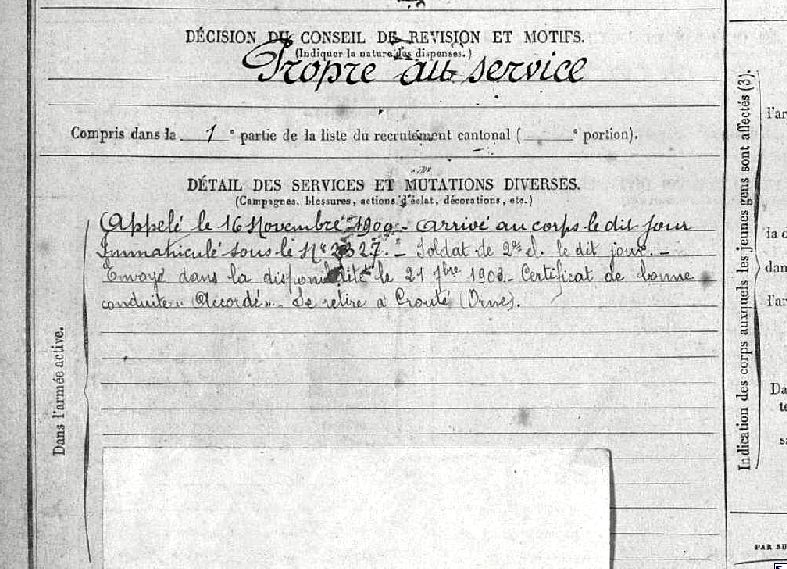 DÉCISION DU CONSEIL DE REVISION ET MOTIFS.
(Indiquer la nature des dispenses.)
Propre au service
Compris dans la 1e partie de la liste du recrutement cantonal ( e portion).
DÉTAIL DES SERVICES ET MUTATIONS DIVERSES.
(Campagnes, blessures, actions d'éclat, décorations, etc.)
Appelé le 16 Novembre - arrivé au corps le dit jour
Immatriculé sous le N° - Soldat de 2e cl. le dit jour. -
Envoyé dans la disponibilité le 21 - Certificat de bonne
conduite « Accordé » - Se retire à (Orne).
Dans l'armée active.
Indication des corps auxquels les jeunes gens sont affectés (3).
l'ar
dan
l'ar
Da
te
PAR SU